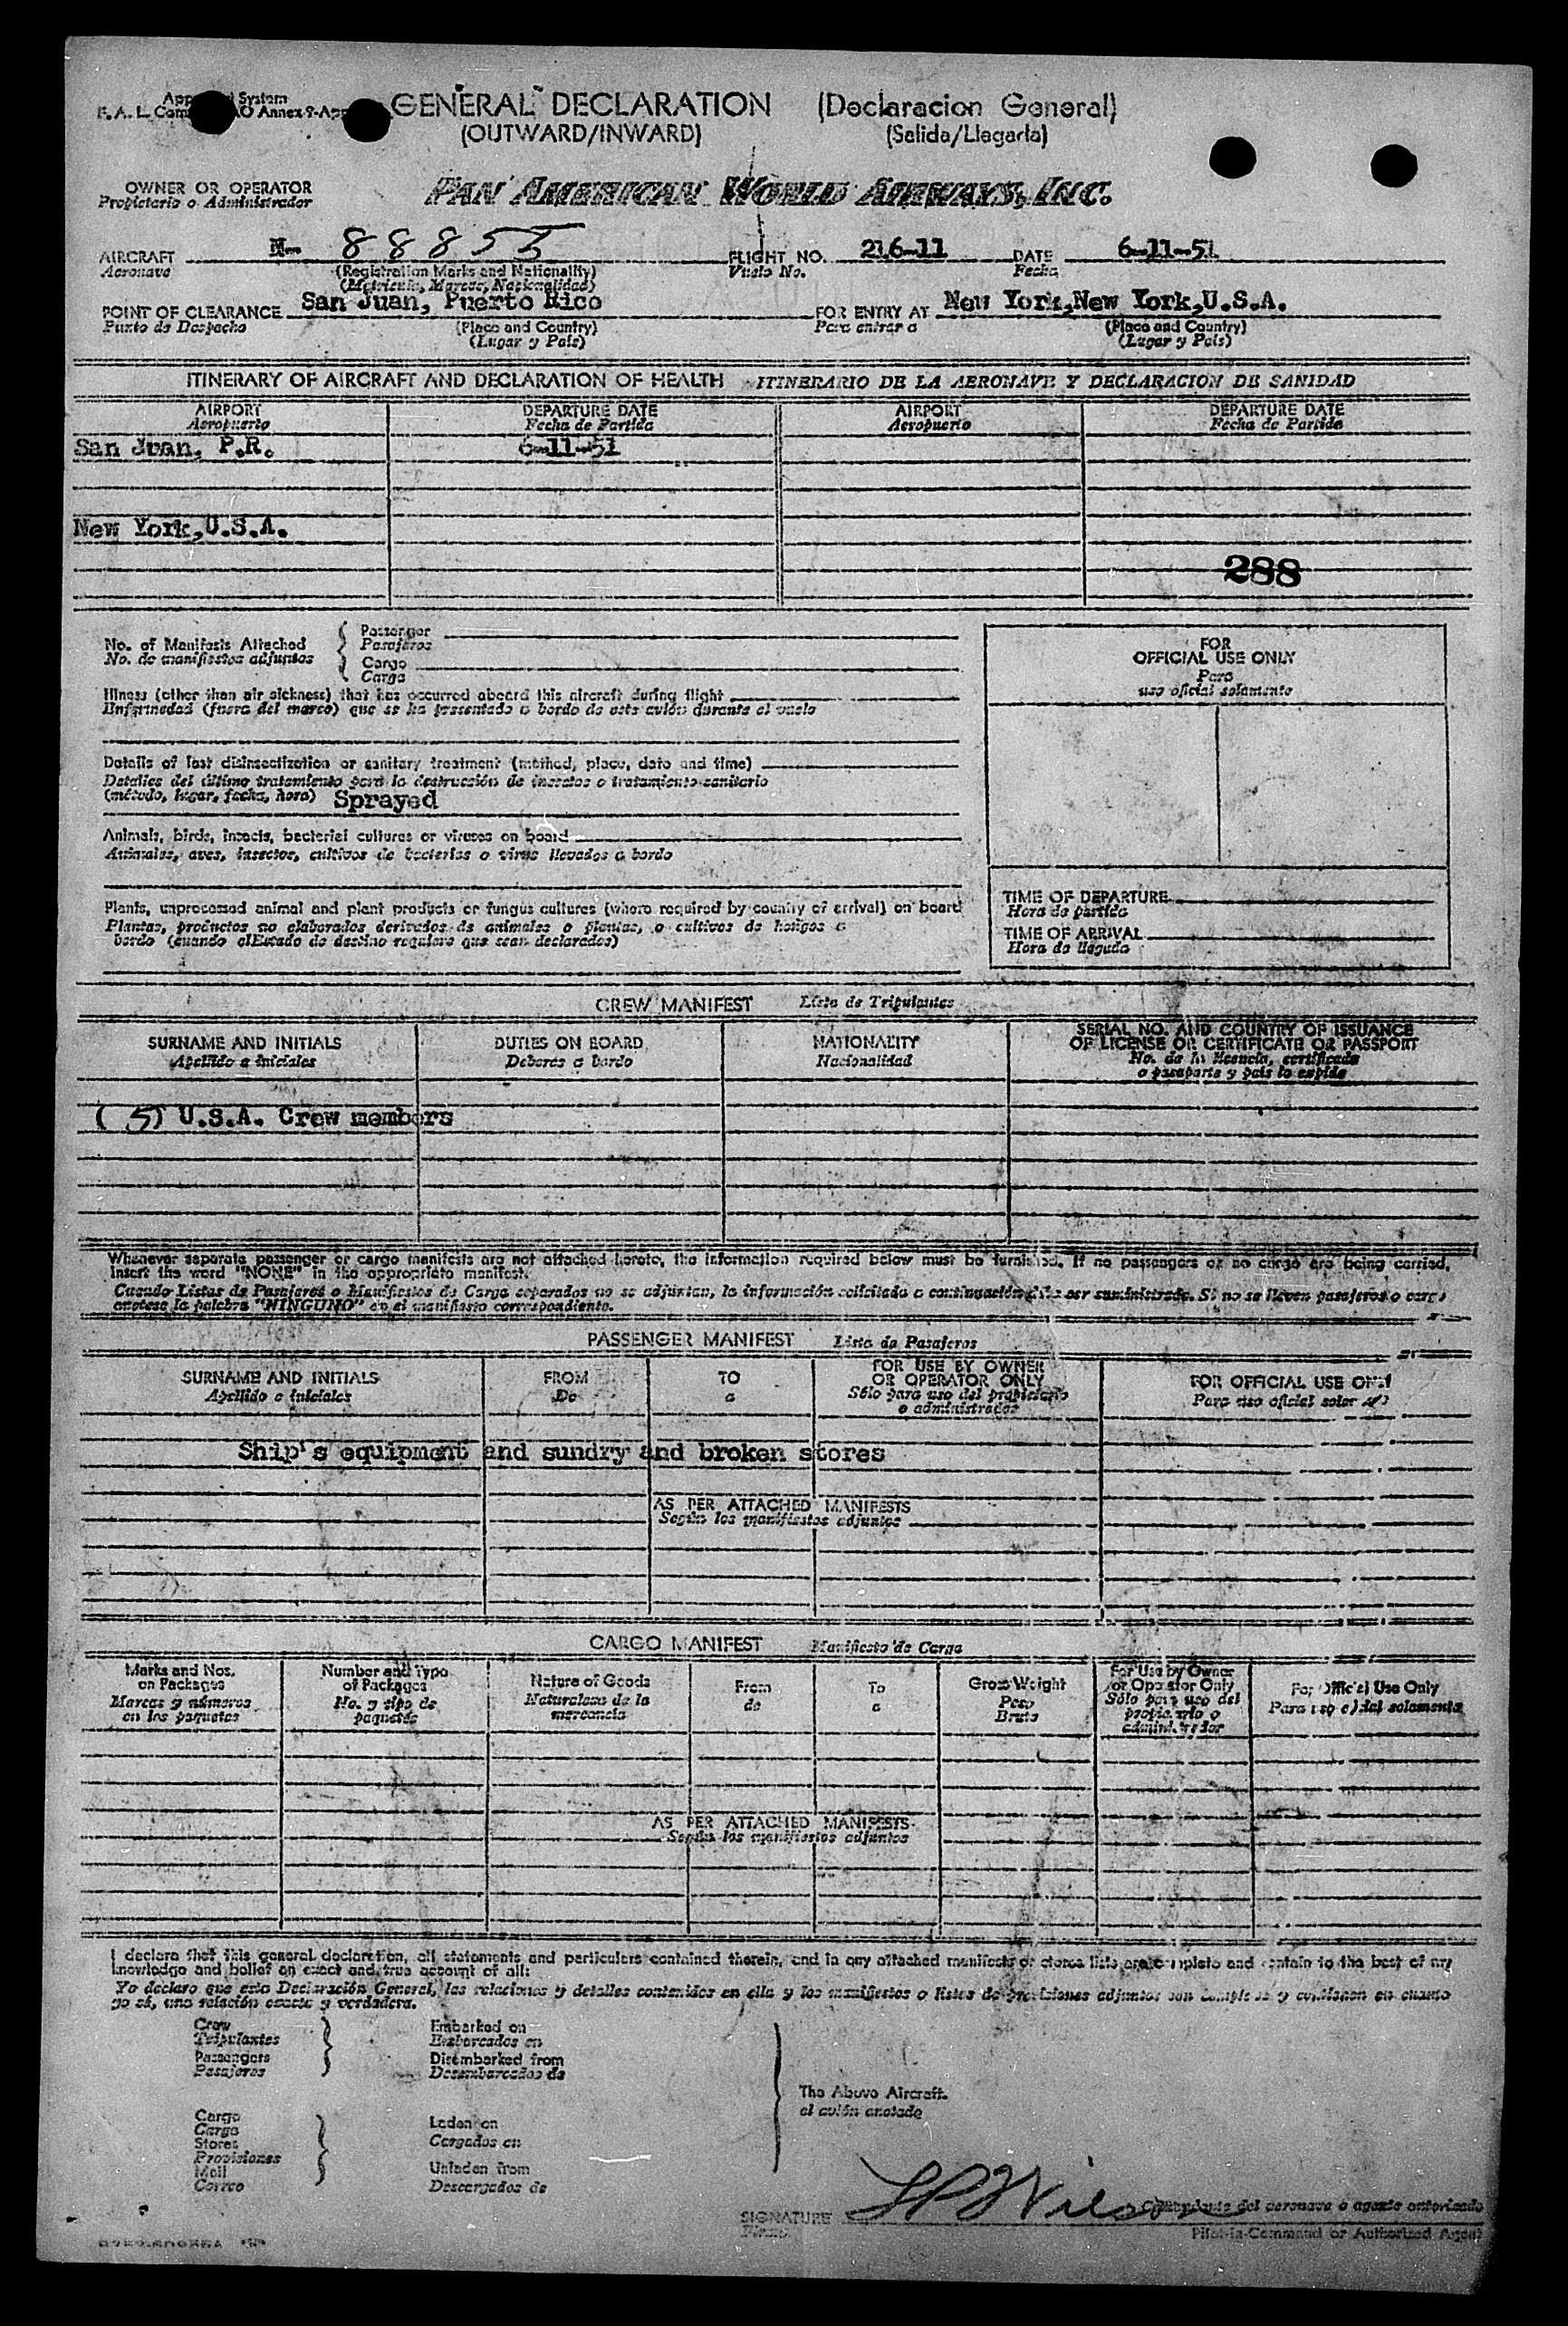 GENERAL DECLARATION (Declaracion General)
(OUTWARD/INWARD) (Salida/Llegada)
OWNER OR OPERATOR
Propietario o Administrador
PAN AMERICAN WORLD AIRWAYS, INC.
AIRCRAFT N- 88855 FLIGHT NO. 216-11 DATE 6-11-51
Aeronave (Registration Marks and Nationality) Vuelo No. Fecha
(Matricula, Marcas, Nacionalidad)
POINT OF CLEARANCE San Juan, Puerto Rico FOR ENTRY AT New York,New York,U.S.A.
Punto de Despacho (Place and Country) Para entrar a (Place and Country)
(Lugar y Pais) (Lugar y Pais)
ITINERARY OF AIRCRAFT AND DECLARATION OF HEALTH ITINERARIO DE LA AERONAVE Y DECLARACION DE SANIDAD
AIRPORT DEPARTURE DATE AIRPORT DEPARTURE DATE
Aeropuerto Fecha de Partida Aeropuerto Fecha de Partida
San Juan, P.R. 6-11-51
New York,U.S.A.
288
No. of Manifests Attached
No. de manifiestos adjuntos
Passenger
Pasajeros
Cargo
Carga
Illness (other than air sickness) that has occurred aboard this aircraft during flight
Enfermedad (fuera del mareo) que se ha presentado a bordo de este avión durante el vuelo
Details of last disinsectization or sanitary treatment (method, place, date and time)
Detalles del último tratamiento para la destrucción de insectos o tratamiento sanitario
(método, lugar, fecha, hora) Sprayed
Animals, birds, insects, bacterial cultures or viruses on board
Animales, aves, insectos, cultivos de bacterias o virus llevados a bordo
Plants, unprocessed animal and plant products or fungus cultures (where required by country of arrival) on board
Plantas, productos no elaborados derivados de animales o plantas, o cultivos de hongos a
bordo (cuando el Estado de destino requiere que sean declarados)
FOR
OFFICIAL USE ONLY
Para
uso oficial solamente
TIME OF DEPARTURE
Hora de partida
TIME OF ARRIVAL
Hora de llegada
CREW MANIFEST Lista de Tripulantes
SURNAME AND INITIALS DUTIES ON BOARD NATIONALITY SERIAL NO. AND COUNTRY OF ISSUANCE
OF LICENSE OR CERTIFICATE OR PASSPORT
Apellido e iniciales Deberes a bordo Nacionalidad No. de la licencia, certificado
o pasaporte y pais lo expide
( 5) U.S.A. Crew members
Whenever separate passenger or cargo manifests are not attached hereto, the information required below must be furnished. If no passengers or no cargo are being carried,
insert the word "NONE" in the appropriate manifest.
Cuando Listas de Pasajeros o Manifiestos de Carga separados no se adjuntan, la información solicitada a continuación debe ser suministrada. Si no se lleven pasajeros o carga
anotese la palabra "NINGUNO" en el manifiesto correspondiente.
PASSENGER MANIFEST Lista de Pasajeros
SURNAME AND INITIALS FROM TO FOR USE BY OWNER
OR OPERATOR ONLY FOR OFFICIAL USE ONLY
Apellido e iniciales De a Sólo para uso del propietario
o administrador Para uso oficial
Ship's equipment and sundry and broken stores
AS PER ATTACHED MANIFESTS
Según los manifiestos adjuntos
CARGO MANIFEST Manifiesto de Carga
Marks and Nos.
on Packages
Marcas y números
en los paquetes
Number and Type
of Packages
No. y tipo de
paquetes
Nature of Goods
Naturaleza de la
mercancia
From
de
To
a
Gross Weight
Peso
Bruto
For Use by Owner
or Operator Only
Sólo para uso del
propietario o
administrador
For Official Use Only
Para uso oficial solamente
AS PER ATTACHED MANIFESTS
Según los manifiestos adjuntos
I declare that this general declaration, all statements and particulars contained therein, and in any attached manifests or stores lists are complete and contain to the best of my
knowledge and belief an exact and true account of all:
Yo declaro que esta Declaración General, las relaciones y detalles contenidos en ella y los manifiestos o listas de provisiones adjuntos son completos y contienen en cuanto
yo sé, una relación exacta y verdadera.
Crew
Tripulantes
Passengers
Pasajeros
Embarked on
Embarcados en
Disembarked from
Desembarcados de
Cargo
Carga
Stores
Provisiones
Mail
Correo
Laden on
Cargados en
Unladen from
Descargados de
The Above Aircraft.
el avión anotado
SIGNATURE LPWilson
Firma
Comandante del aeronave o agente autorizado
Pilot-in-Command or Authorized Agent